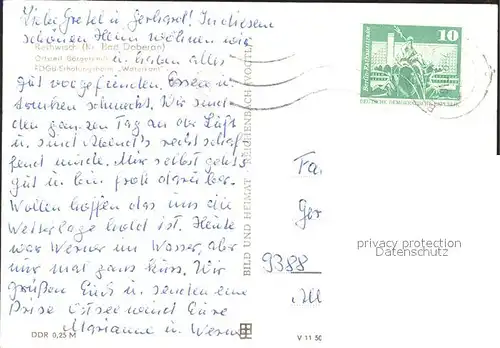 Liebe Gretel u. Gerhard! In diesem
schönen Heim wohnen wir
Rethwisch (Kr. Bad Doberan)
u. haben alles
Ortsteil Börgerende
FDGB-Erholungsheim „Waterkant"
gut vorgefunden. Essen u.
trinken schmeckt. Wir sind
den ganzen Tag an der Luft
u. sind Abend's recht schaf
fend müde. Mir selbst geht's
gut u. bin froh darüber.
Wollen hoffen das uns die
Wetterlage hold ist. Heute
war Werner im Wasser, aber
nur mal ganz kurz. Wir
grüßen Euch u. senden eine
Prise Ostseewind Eure
Marianne u. Werner
DDR 0,25 M
BILD UND HEIMAT · REICHENBACH (VOGTL)
V 11 50
10
Berlin, Rathausstraße
DEUTSCHE DEMOKRATISCHE REPUBLIK
Fa
Ger
9388
All
privacy protection
Datenschutz